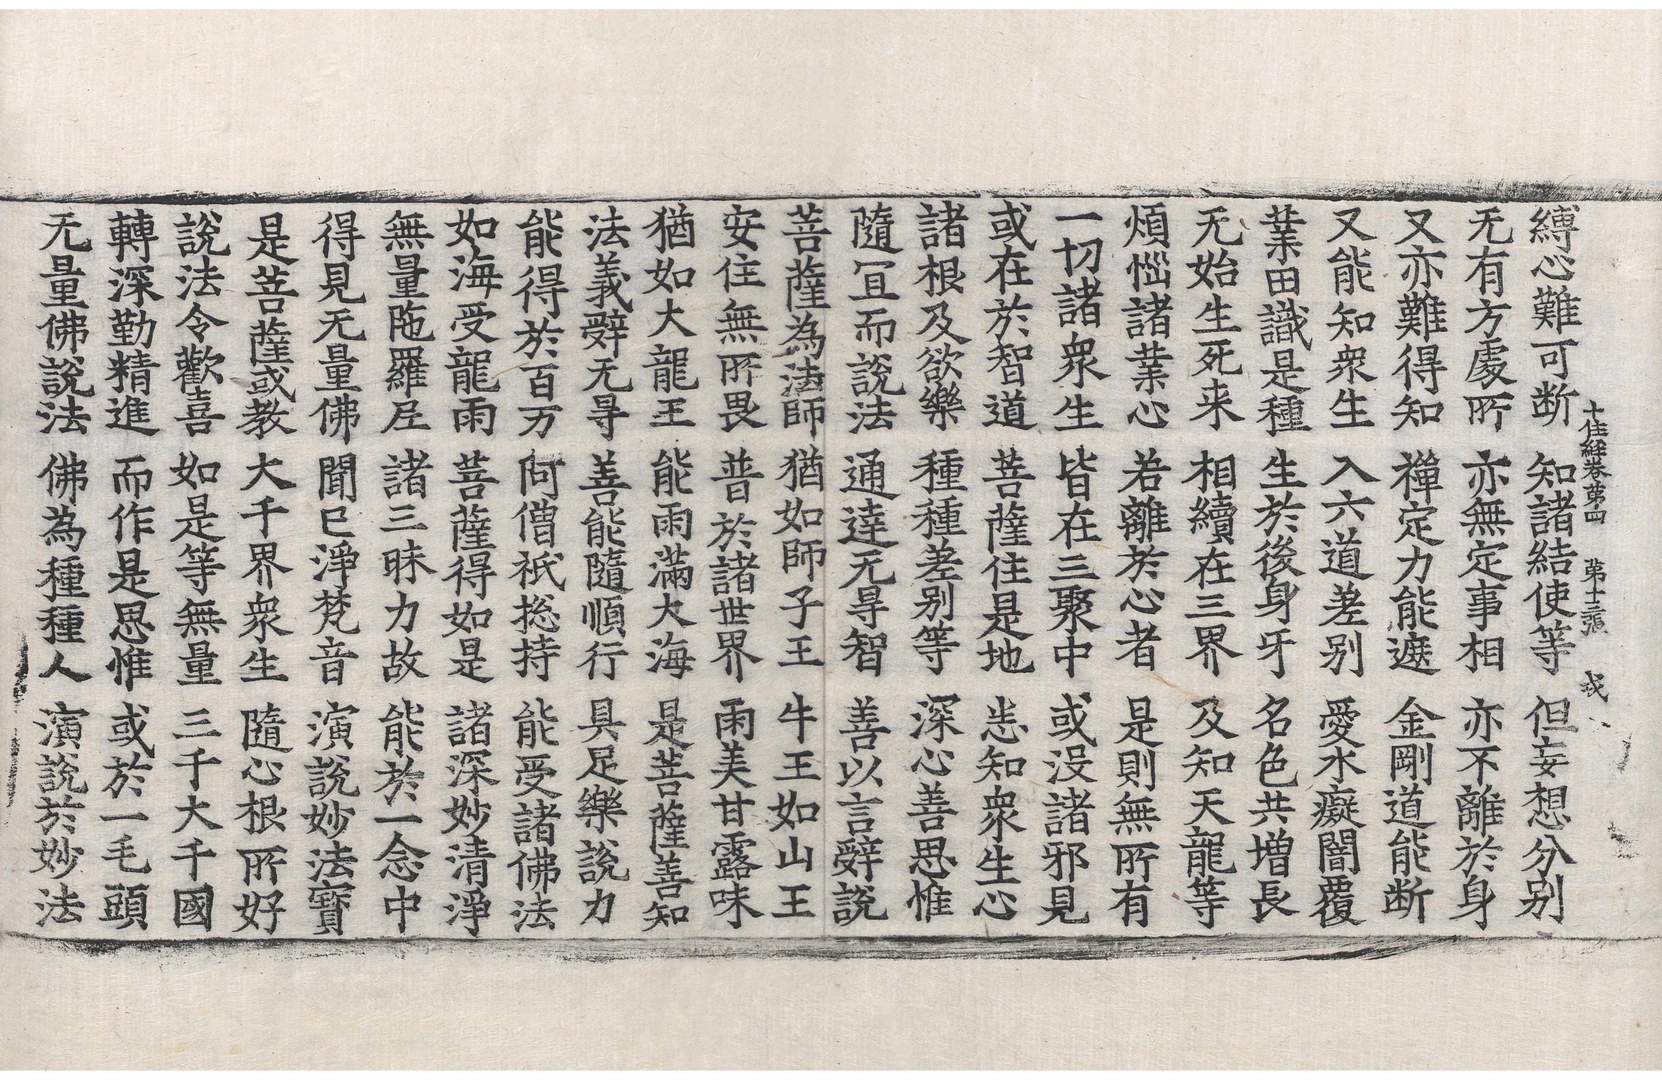 十住經卷第四　第十三張　戓
縛心難可断　知諸結使等　但妄想分别
无有方處所　亦無定事相　亦不離於身
又亦難得知　禪定力能遮　金剛道能断
又能知衆生　入六道差别　愛水癡闇覆
業田識是種　生於後身牙　名色共增長
无始生死来　相續在三界　及知天龍等
煩惱諸業心　若離於心者　是則無所有
一切諸衆生　皆在三聚中　或没諸邪見
或在於智道　菩薩住是地　悉知衆生心
諸根及欲樂　種種差别等　深心善思惟
隨冝而說法　通達无㝵智　善以言辭說
菩薩為法師　猶如師子王　牛王如山王
安住無所畏　普於諸世界　雨美甘露味
猶如大龍王　能雨滿大海　是菩薩善知
法義辭无㝵　善能隨順行　具足樂說力
能得於百万　阿僧祇捴持　能受諸佛法
如海受龍雨　菩薩得如是　諸深妙清淨
無量陁羅尼　諸三昧力故　能於一念中
得見无量佛　聞已淨梵音　演說妙法寶
是菩薩或教　大千界衆生　隨心根所好
說法令歡喜　如是等無量　三千大千國
轉深勤精進　而作是思惟　或於一毛頭
无量佛說法　佛為種種人　演說於妙法